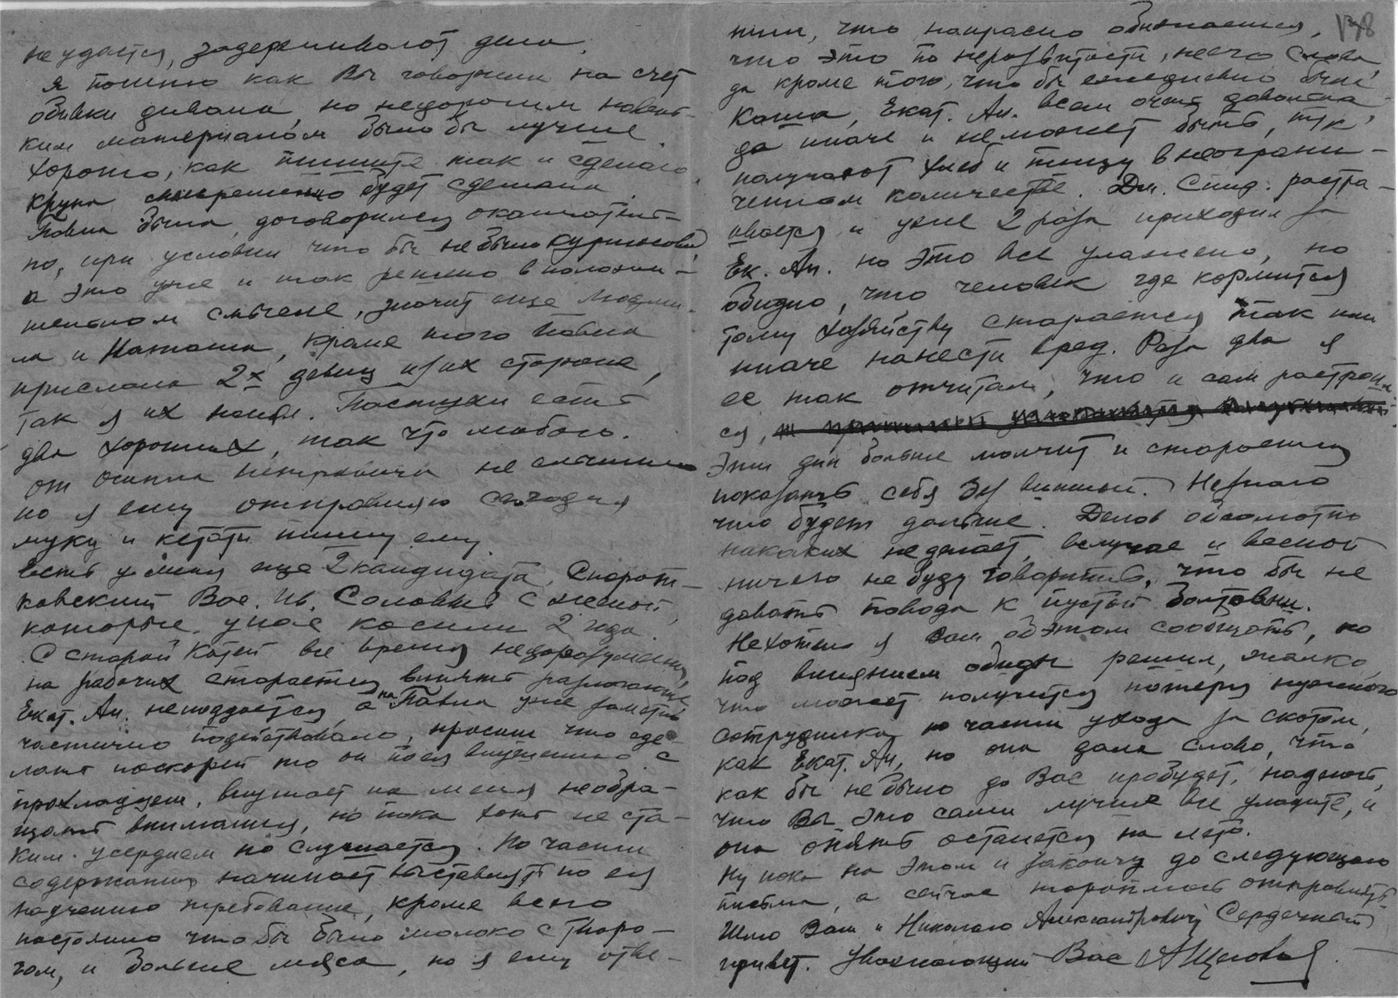 не удастся, задерживают дела.
Я помню как Вы говорили на счет
обивки дивана, но недорогим
ким материалом было бы лучше
хорошо, как пишите так и сделаю.
Крупа своевременно будет сделана
Павла была, договорился окончатель-
но, при условии что бы не было
а это уже и так решено в положи-
тельном смысле, значит еще Людми-
ла и Наташа, кроме того Павла
прислала 2х девиц из их стороне,
так я их Пастухи есть
два хороших, так что
от Осипа Петровича не слышно
но я ему отправляю сегодня
муку и кстати пишу ему.
Есть у меня еще 2 кандидата,
Вас. Ив. Соловьев с женой,
которые у нас косили 2 года.
С старой Катей все время недоразумения,
на рабочих старается влиять
Екат. Ан. не поддается, а на Павла уже заметно
частично подействовало, просил что сде-
лать поскорей то он после внушению с
прохладцем, внушает на меня необра-
щать внимания, но пока хоть не ста-
ким усердием но слушается. По части
содержания начинает выставлять по ея
научению требование, кроме всего
настояно что бы было молоко с творо-
гом, и больше мяса, но я ему отве-
138
тил, что напрасно обижается,
что это по неразвитости, не его слова
да кроме того, что бы ежедневно была
каша, Екат. Ан. всем очень довольна
да иначе и не может быть, т.к.
получают хлеб и пищу в неограни-
ченном количестве. растра-
ивается и уже 2 раза приходил за
Ек. Ан. но это все улажено, но
обидно, что человек где кормится
тому хозяйству старается так или
иначе нанести вред. Раза два я
ее так отчитал, что и сам растроил-
ся,
Эти дни больше молчит и старается
показать себя Незнаю
что будет дальше. Делов абсолютно
никаких не делает, в случае и весной
ничего не буду говорить, что бы не
давать повода к пустой болтовни.
Нехотел я Вам об этом сообщать, но
под влиянием обиды решил, жалко
что может получится потеря нужного
сотрудника по части ухода за скотом,
как Екат. Ан, но она дала слово, что
как бы не было до Вас пробудет, надеюсь
что Вы это сами лучше все уладите, и
она опять останется на лето.
Ну пока на этом и закончу до следующего
письма, а сейчас тороплюсь отправить.
Шлю Вам и Николаю Александровичу Сердечный
привет. Уважающий Вас А Щегловъ